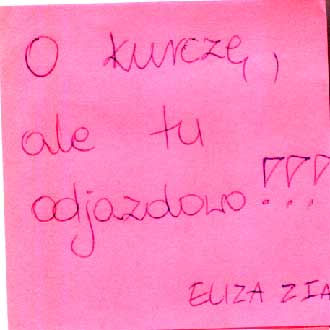 O kurczę,
ale tu
odjazdowo!!!
ELIZA ZIA